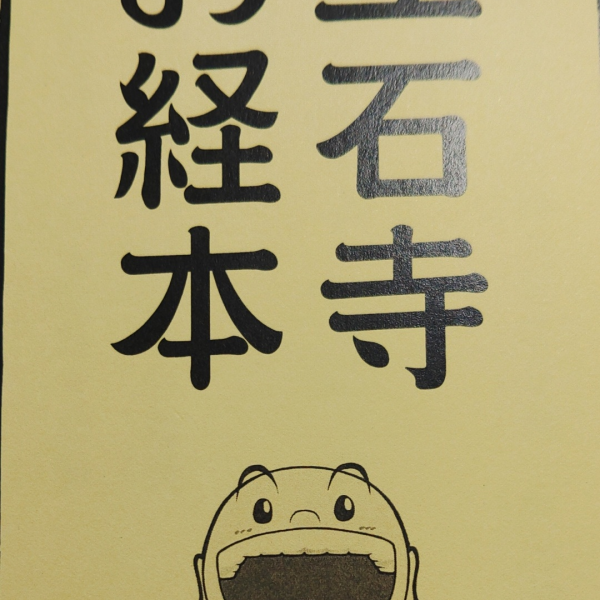 石寺
お経本